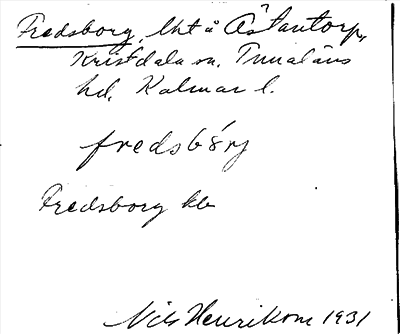 Fredsborg, lht å Östantorp,
Kristdala sn. Tunaläns
hd. Kalmar l.
fredsbórj
Fredsborg kb
Nils Henrikson 1931